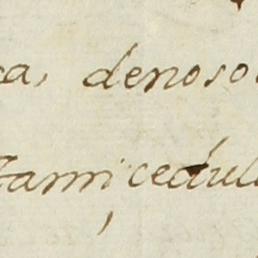 ca, denoso
tami cedul